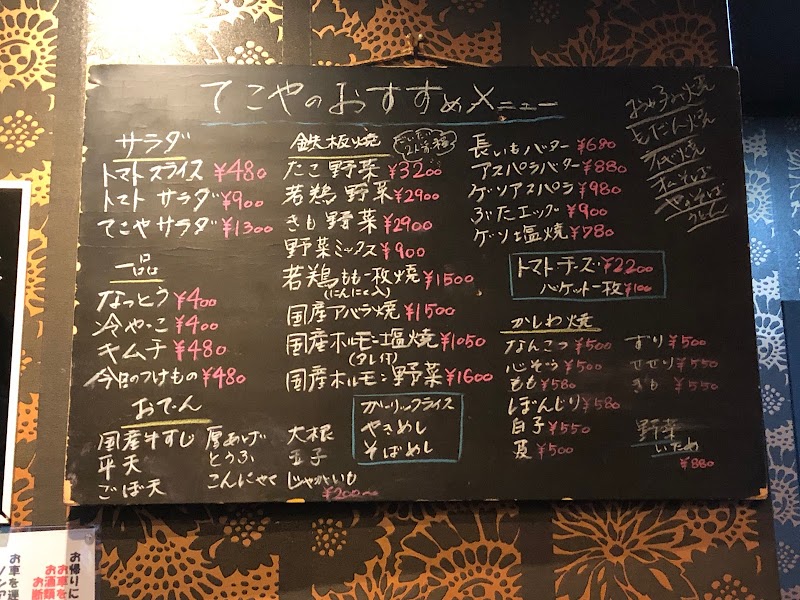 てこやのおすすめメニュー
サラダ
トマトスライス ¥480
トマトサラダ ¥900
てこやサラダ ¥1300
一品
なっとう ¥400
冷やっこ ¥400
キムチ ¥480
今日のつけもの ¥480
おでん
国産牛すじ 厚あげ 大根
平天 とうふ 玉子
ごぼ天 こんにゃく じゃがいも
¥200〜
鉄板焼 だいたい2人前
たこ野菜 ¥3200
若鶏野菜 ¥2900
きも野菜 ¥2900
野菜ミックス ¥900
若鶏もも一枚焼 ¥1500
(にんにく入)
国産アバラ焼 ¥1500
国産ホルモン塩焼 ¥1050
(タレ付)
国産ホルモン野菜 ¥1600
ガーリックライス
やきめし
そばめし
長いもバター ¥680
アスパラバター ¥880
ゲソアスパラ ¥980
ぶたエッグ ¥900
ゲソ塩焼 ¥780
トマトチーズ ¥2200
バケット一枚 ¥100
かしわ焼
なんこつ ¥500 ずり ¥500
心ぞう ¥500 せせり ¥550
もも ¥580 きも ¥550
ぼんじり ¥580
白子 ¥550
皮 ¥500
野菜
いため
¥880
お好み焼
もだん焼
ねぎ焼
オムそば
やきそば
うどん
お帰りに
お車を
お酒類
お断
お車を運
ノンア